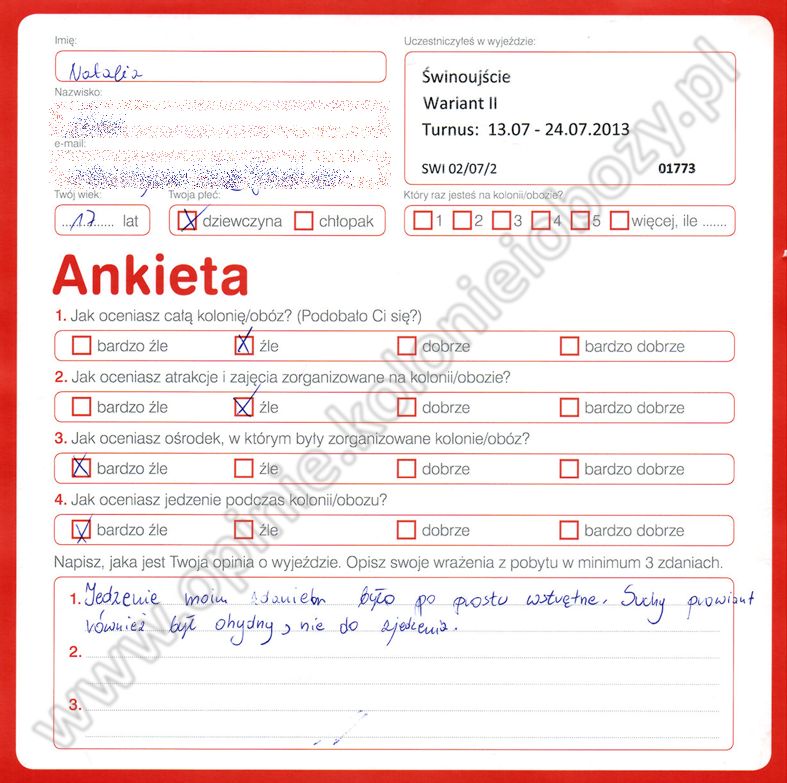 Imię:
Natalia
Uczestniczyłeś w wyjeździe:
Świnoujście
Wariant II
Turnus: 13.07 - 24.07.2013
SWI 02/07/2 01773
Nazwisko:
e-mail:
Twój wiek:
17 lat
Twoja płeć:
dziewczyna chłopak
Który raz jesteś na kolonii/obozie?
1 2 3 4 5 więcej, ile .......
Ankieta
1. Jak oceniasz całą kolonię/obóz? (Podobało Ci się?)
bardzo źle źle dobrze bardzo dobrze
2. Jak oceniasz atrakcje i zajęcia zorganizowane na kolonii/obozie?
bardzo źle źle dobrze bardzo dobrze
3. Jak oceniasz ośrodek, w którym były zorganizowane kolonie/obóz?
bardzo źle źle dobrze bardzo dobrze
4. Jak oceniasz jedzenie podczas kolonii/obozu?
bardzo źle źle dobrze bardzo dobrze
Napisz, jaka jest Twoja opinia o wyjeździe. Opisz swoje wrażenia z pobytu w minimum 3 zdaniach.
1. Jedzenie moim zdaniem było po prostu wstrętne. Suchy prowiant
również był ohydny, nie do zjedzenia.
2.
3.
www.opinie.kolonieiobozy.pl